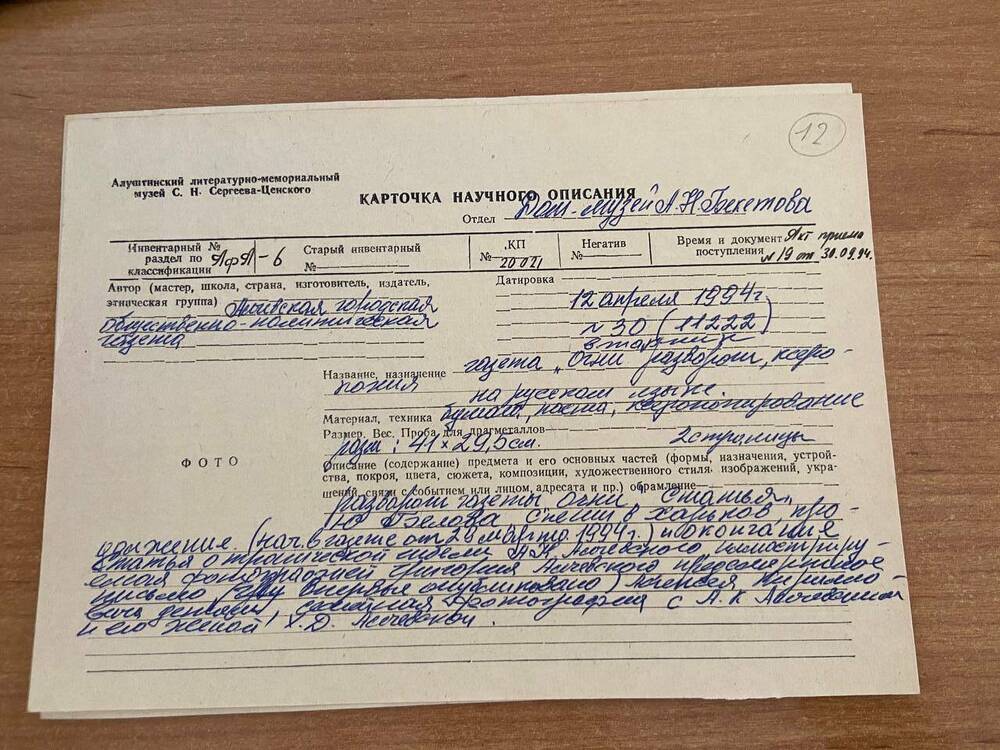 12
Алуштинский литературно-мемориальный
музей С. Н. Сергеева-Ценского
КАРТОЧКА НАУЧНОГО ОПИСАНИЯ
Отдел Дом-музей А.Н. Бекетова
Инвентарный №
раздел по
классификации АфА-6
Старый инвентарный
№
КП
№ 20021
Негатив
№
Время и документ
поступления Акт приема
№ 19 от 30.09.94.
Автор (мастер, школа, страна, изготовитель, издатель,
этническая группа) Алчевская городская
общественно-политическая
газета
Датировка
12 апреля 1994г.
№ 30 (11222)
вторник
Название, назначение газета "Огни" разворот, ксеро-
копия на русском языке.
Материал, техника бумага, паста, ксерокопирование
Размер. Вес. Проба для драгметаллов
разм: 41×29,5см. 2 страницы
ФОТО
Описание (содержание) предмета и его основных частей (формы, назначения, устрой-
ства, покроя, цвета, сюжета, композиции, художественного стиля изображений, укра-
шений, связи с событием или лицом, адресата и пр.) обрамление
разворот газеты Огни". Статья
Ю Белова "Спеши в Харьков", про-
должение. (нач. в газете от 29 марта 1994г.) и окончание
статья о трагической гибели А.К Алчевского, иллюстриру-
емая Григория Алчевского предсмертное
письмо впервые опубликовано) Алексея Кирилло-
вича семейная фотография с А.К Алчевским
и его женой Х.Д. Алчевской.